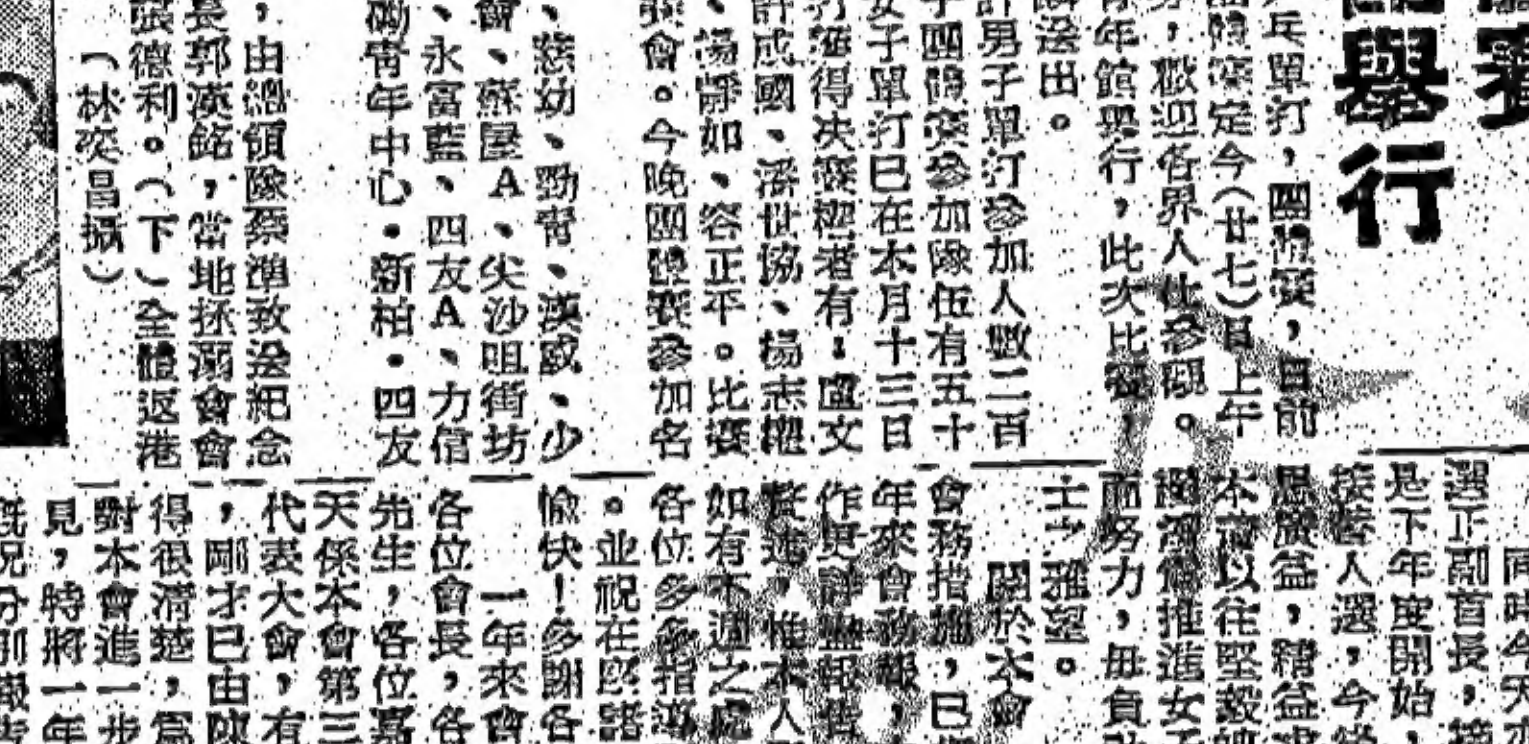 舉行
兵單打，團體賽，日前
定今（廿七）日上午
，歡迎各界人仕參觀。
年館舉行，此次比賽，
送出。
男子單打參加人數二百
子團體賽參加隊伍有五十
女子單打已在本月十三日
打獲得決賽權者有：盧文
許成國、潘世協、楊志權
、湯靜如、容正平。比賽
會。今晚團體賽參加名
、慈幼、勁青、漢威、少
會、蘇屋A、尖沙咀街坊
、永富藍、四友A、力信
勵青年中心．新柏．四友
，由總領隊蔡準致送紀念
長郭漢銘，當地拯溺會會
張德利。（下）全體返港
（林奕昌攝）
同時今天
選正副首長，接
是下年度開始，
接替人選，今後
思廣益，精益求
本着以往堅毅
推進女子
而努力，毋負
士之雅望。
關於本會
會務措施，已
年來會務報，
作更詳盡報告
贅述，惟本人
如有不週之處
各位多多指導
。並祝在座諸
愉快！多謝各
一年來會
各位會長，各
先生，各位嘉
天係本會第三
代表大會，有
，剛才已由陳
得很清楚，爲
對本會進一步
見，時將一年
概況分別報告